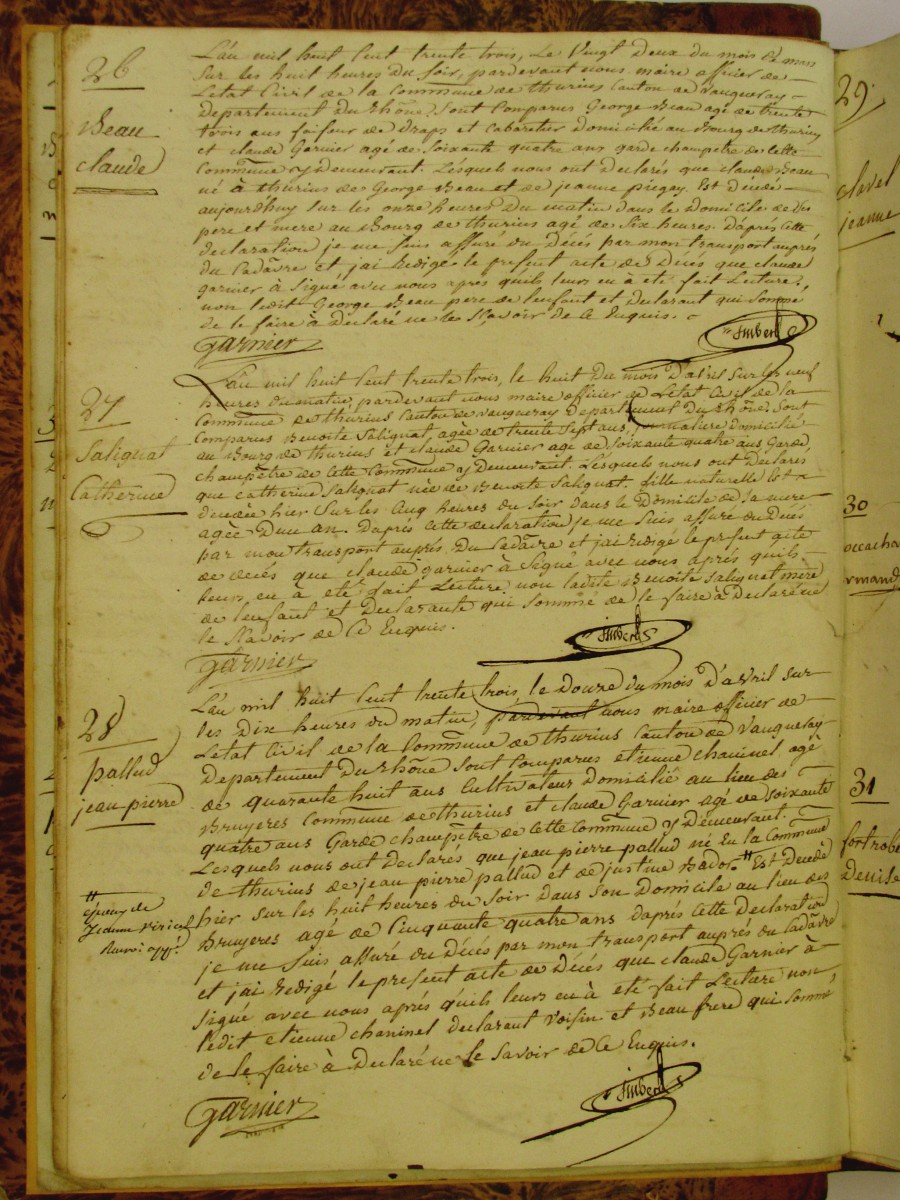 26
Beau
claude
L'an mil huit Cent trente trois, Le Vingt Deux du mois de mars
Sur les huit heures Du Soir, pardevant nous maire officier de
Letat Civil de la Commune de thurins Canton de Vaugneray
Departement Du Rhône, Sont Comparus George Beau agé de trente
trois ans faiseur de Draps et Cabaretier Domicilié au Bourg de thurins
et claude Garnier agé de Soixante quatre ans garde champetre de Cette
Commune y Demeurant. Lesquels nous ont Declarés que claude Beau
né à thurins de George Beau et de jeanne piegay. Est Decedé
aujourdhuy Sur les onze heures Du matin dans le Domicile de Ses
pere et mere au Bourg de thurins agé de Six heures. D'après Cette
declaration je me Suis assuré du Décés par mon transport auprés
du Cadâvre et jai Redigé le present acte de Décés que claude
garnier à Signé avec nous aprés qu'ils leurs en à eté fait Lecture,
non ledit George Beau pere de lenfant et Declarant qui Sommé
de le faire à Declaré ne les Scavoir de Ce Enquis.
garnier
Imbert
27
Salignat
Catherine
L'an mil huit Cent trente trois, le huit Du mois D'avril Sur les neuf
heures Du matin pardevant nous maire officier de Létat Civil de la
Commune de thurins Canton de Vaugneray Departement Du Rhône. Sont
Comparus Benoite Salignat, agée de trente Sept ans, Domicilié
au Bourg de thurins et claude Garnier agé de Soixante quatre ans Garde
champêtre de Cette Commune y Demeurant. Lésquels nous ont Declarés
que catherine Salignat née de Benoite Salignat. fille naturelle Est
decedée hier Sur les Cinq heures du Soir dans le Domicile de Sa mere
agée D'un an. Daprés Cette declaration, je me Suis assuré du Décés
par mon transport auprés Du Cadâvre et jai Redigé le present acte
de decés que claude garnier à Signé avec nous aprés quils
leurs en à été fait Lecture, non ladite Benoite Salignat mere
de lenfant et Declarante qui Sommé de le faire à Declaré ne
le Scavoir de Ce Enquis.
garnier
imbert
28
pallud
jean pierre
L'an mil huit Cent trente trois, le Douze du mois D'avril Sur
les Dix heures du matin, pardevant nous maire officier de
Letat Civil de la Commune de thurins Canton de Vaugneray
Departement Du Rhône Sont Comparus etienne chaninel agé
de quarante huit ans Cultivateur Domicilié au lieu des
Bruyeres Commune de thurins et claude Garnier agé de Soixante
quatre ans Garde champêtre de Cette Commune y Demeurant.
Lesquels nous ont Declarés que jean pierre pallud né En la Commune
de thurins de jean pierre pallud et de justine Bador # Est Decedé
hier Sur les huit heures du Soir Dans Son Domicile au lieu des
Bruyeres agé de Cinquante quatre ans daprés Cette Declaration
je me Suis assuré du Décés par mon transport auprés du Cadâvre
et jai Redigé le present acte de Décés que claude Garnier à
Signé avec nous aprés qu'ils leurs en à eté fait Lecture non
ledit etienne chaninel declarant Voisin et Beau frere qui Sommé
de le faire à Declaré ne le Savoir de Ce Enquis.
#
époux de
Jeanne Viricel
Renvoi app.é
garnier
imbert
29
clavel
jeanne
30
31
Denise